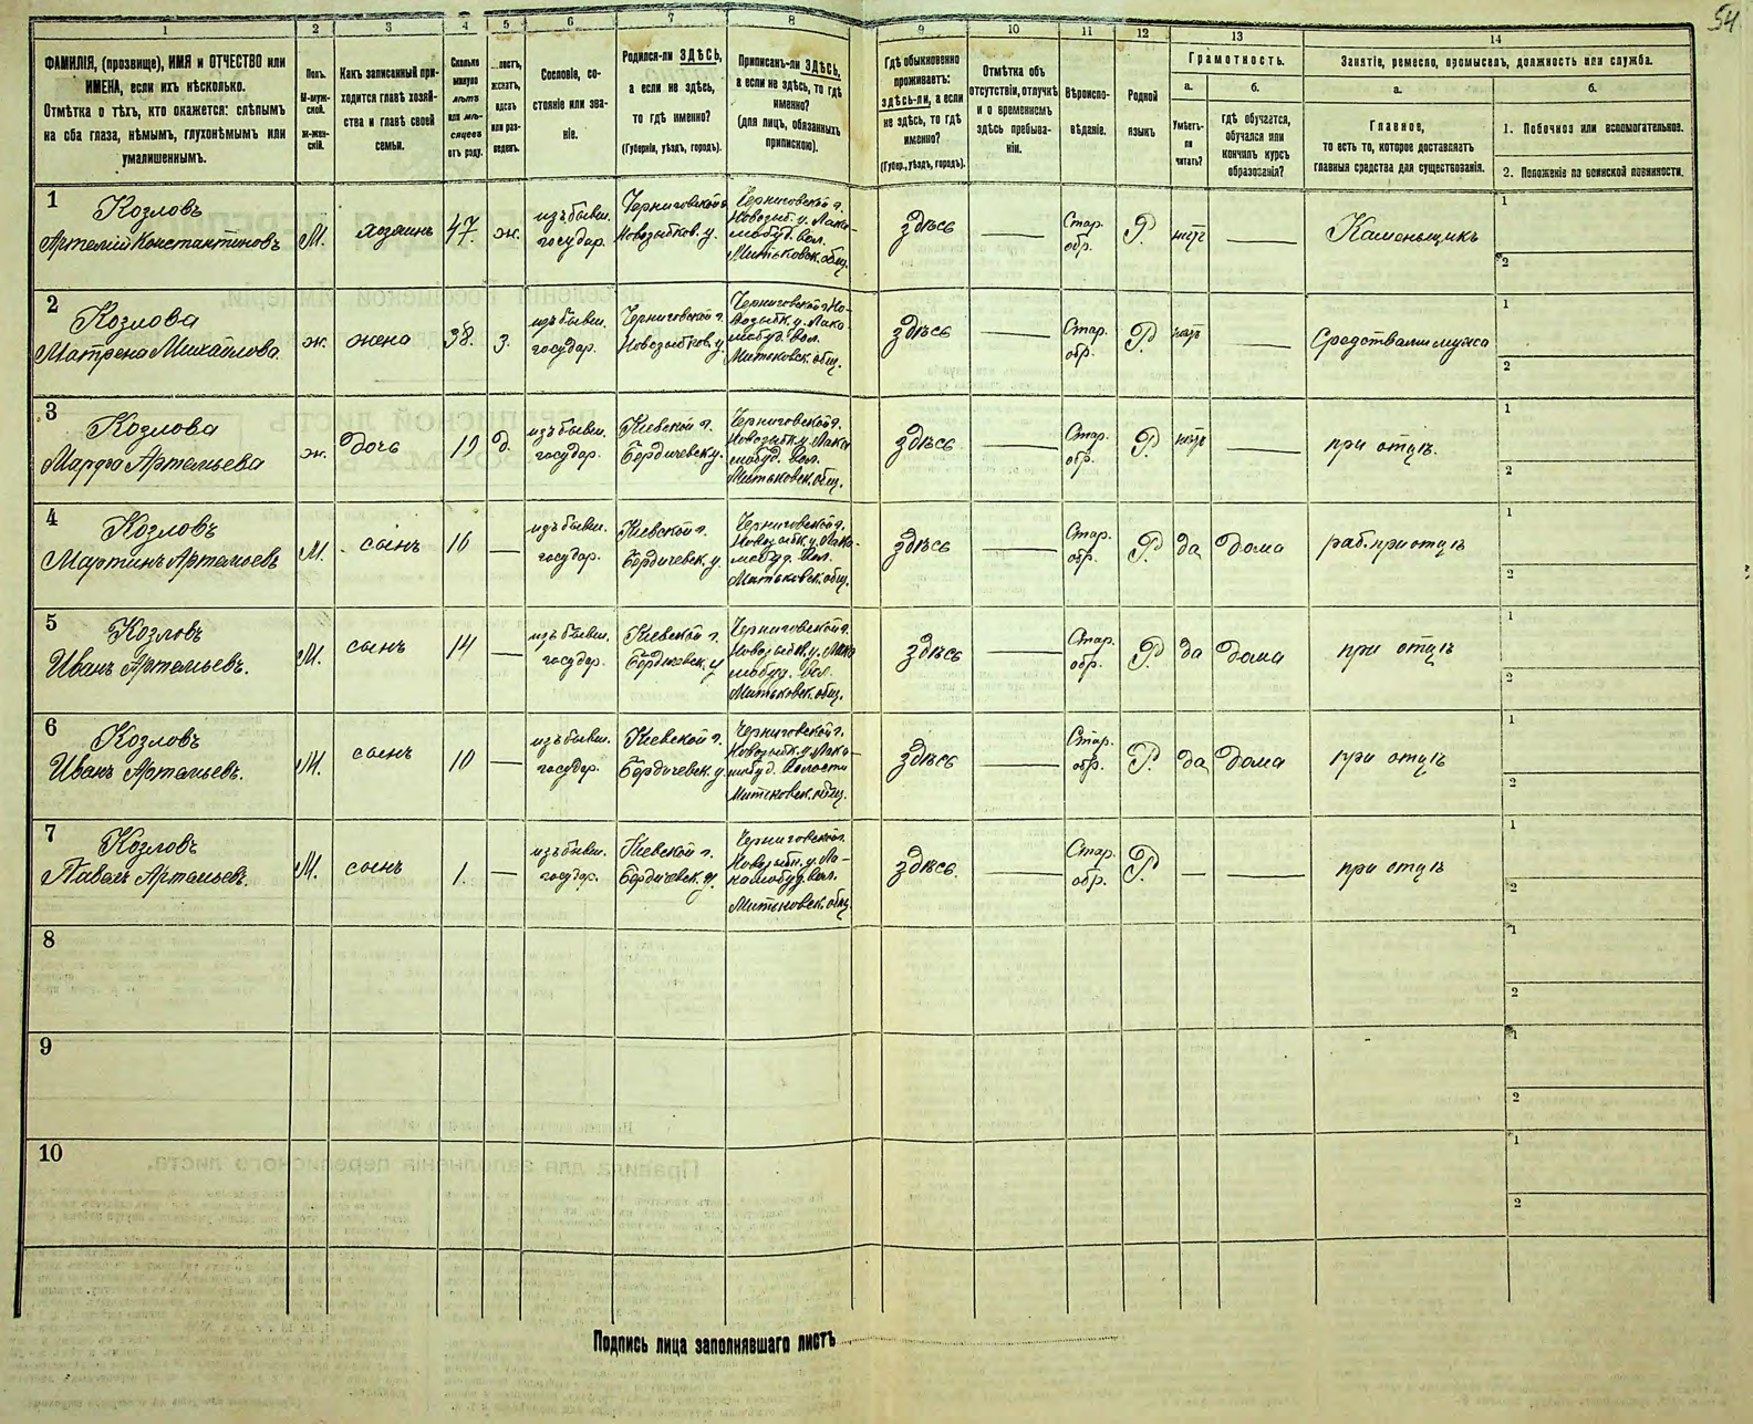 54
1 2 3 4 5 6 7 8 9 10 11 12 13 14
ФАМИЛІЯ, (прозвище), ИМЯ и ОТЧЕСТВО или
ИМЕНА, если ихъ нѣсколько.
Отмѣтка о тѣхъ, кто окажется: слѣпымъ
на оба глаза, нѣмымъ, глухонѣмымъ или
умалишеннымъ.
Полъ.
М-муж-
ской.
Ж-жен-
скій.
Какъ записанный при-
ходится главѣ хозяй-
ства и главѣ своей
семьи.
Сколько
минуло
лѣтъ
или мѣ-
сяцевъ
отъ роду.
...лостъ,
женатъ,
вдовъ
или раз-
веденъ.
Сословіе, со-
стояніе или зва-
ніе.
Родился-ли ЗДѢСЬ,
а если не здѣсь,
то гдѣ именно?
(Губернія, уѣздъ, городъ).
Приписанъ-ли ЗДѢСЬ,
а если не здѣсь, то гдѣ
именно?
(для лицъ, обязанныхъ
припискою).
Гдѣ обыкновенно
проживаетъ:
здѣсь-ли, а если
не здѣсь, то гдѣ
именно?
(Губер., уѣздъ, городъ).
Отмѣтка объ
отсутствіи, отлучкѣ
и о временномъ
здѣсь пребыва-
ніи.
Вѣроиспо-
вѣданіе.
Родной
языкъ
Грамотность.
а.
Умѣетъ-
ли
читать?
б.
гдѣ обучается,
обучался или
кончилъ курсъ
образованія?
Занятіе, ремесло, промыселъ, должность или служба.
а.
Главное,
то есть то, которое доставляетъ
главныя средства для существованія.
б.
1. Побочное или вспомогательное.
2. Положеніе по воинской повинности.
1
Козловъ
Артемій Константиновъ
М.
хозяинъ
47.
ж.
изъ бывш.
государ.
Черниговской г.
Новозыбков. у.
Черниговской г.
Новозыб. у. Лако-
мобуд. вол.
Митьковск. общ.
здѣсь
Стар.
обр.
Р.
нѣтъ
Каменьщикъ
1
2
2
Козлова
Матрена Михайлова
ж.
жена
38.
з.
изъ бывш.
государ.
Черниговской г.
Новозыбков. у.
Черниговской г. Но-
возыбк. у. Лако
мобуд. вол.
Митьковск. общ.
здѣсь
Стар.
обр.
Р.
нѣтъ
Средствами мужа
1
2
3
Козлова
Марфа Артемьева
ж.
дочь
19
д.
изъ бывш.
государ.
Кіевской г.
Бердичевск. у.
Черниговской г.
Новозыбк. у. Лако
мобуд. вол.
Митьковск. общ.
здѣсь
Стар.
обр.
Р.
нѣтъ
при отцѣ.
1
2
4
Козловъ
Мартинъ Артемьевъ
М.
сынъ
16
изъ бывш.
государ.
Кіевской г.
Бердичевск. у.
Черниговской г.
Новозыбк. у. Лако-
мобуд. вол.
Митьковск. общ.
здѣсь
Стар.
обр.
Р.
да
дома
раб. при отцѣ
1
2
5
Козловъ
Иванъ Артемьевъ.
М.
сынъ
14
изъ бывш.
государ.
Кіевской г.
Бердичевск. у
Черниговской г.
Новозыбк. у. Лако
мобуд. вол.
Митьковск. общ.
здѣсь
Стар.
обр.
Р.
да
дома
при отцѣ
1
2
6
Козловъ
Иванъ Артемьевъ.
М.
сынъ
10
изъ бывш.
государ.
Кіевской г.
Бердичевск. у.
Черниговской г.
Новозыбк. у. Лако-
мобуд. волости
Митьковск. общ.
здѣсь
Стар.
обр.
Р.
да
дома
при отцѣ
1
2
7
Козловъ
Павелъ Артемьевъ.
М.
сынъ
1.
изъ бывш.
государ.
Кіевской г.
Бердичевск. у.
Черниговской г.
Новозыбк. у. Ла-
комобуд. вол.
Митьковск. общ.
здѣсь.
Стар.
обр.
Р.
при отцѣ
1
2
8
1
2
9
1
2
10
1
2
Подпись лица заполнявшаго листъ